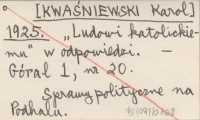 [KWAŚNIEWSKI Karol]
1925. „Ludowi katolickie-
mu" w odpowiedzi. –
Góral 1, nr 20.
Sprawy polityczne na
Podhalu.